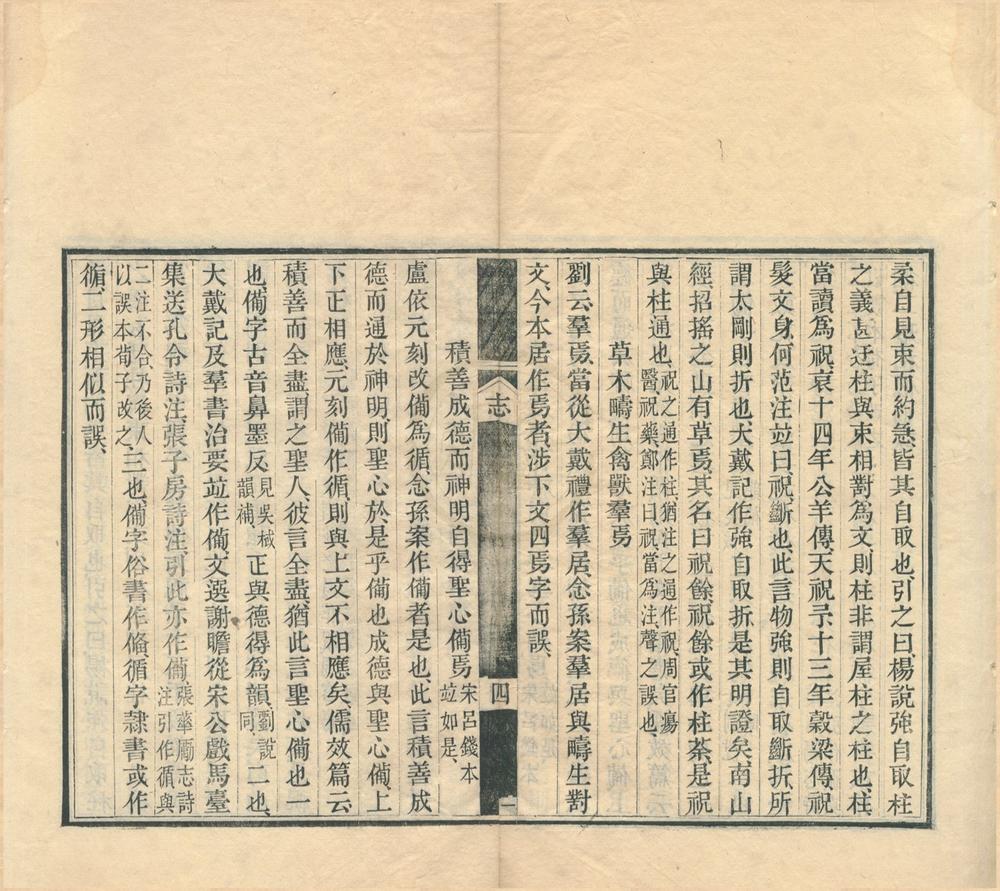 柔自見束而約急、皆其自取也、引之曰、楊說強自取柱
之義甚迂、柱與束相對爲文、則柱非謂屋柱之柱也、柱
當讀爲祝、哀十四年公羊傳、天祝予、十三年穀梁傳、祝
髮文身、何范注竝曰、祝、斷也、此言物強則自取斷折、所
謂太剛則折也、大戴記作強自取折、是其明證矣、南山
經、招搖之山有草焉、其名曰祝餘、祝餘或作柱荼、是祝
與柱通也、祝之通作柱、猶注之通作祝、周官瘍
醫祝藥、鄭注曰、祝當爲注、聲之誤也、
草木疇生禽獸羣焉
劉云、羣焉、當從大戴禮作羣居、念孫案羣居與疇生對
文、今本居作焉者、涉下文四焉字而誤、
志
四
積善成德而神明自得聖心僃焉 宋呂錢本
竝如是、
盧依元刻改僃爲循、念孫案作僃者是也、此言積善成
德而通於神明、則聖心於是乎僃也、成德與聖心僃、上
下正相應、元刻僃作循、則與上文不相應矣、儒效篇云
積善而全盡、謂之聖人、彼言全盡、猶此言聖心僃也、一
也、僃字古音鼻墨反、見吳棫
韻補、正與德得爲韻、劉說
同、二也、
大戴記及羣書治要竝作僃、文選謝瞻從宋公戲馬臺
集送孔令詩注、張子房詩注、引此亦作僃、張華勵志詩
注引作循、與
二注不合、乃後人
以誤本荀子改之、三也、僃字俗書作俻、循字隸書或作
循、二形相似而誤、